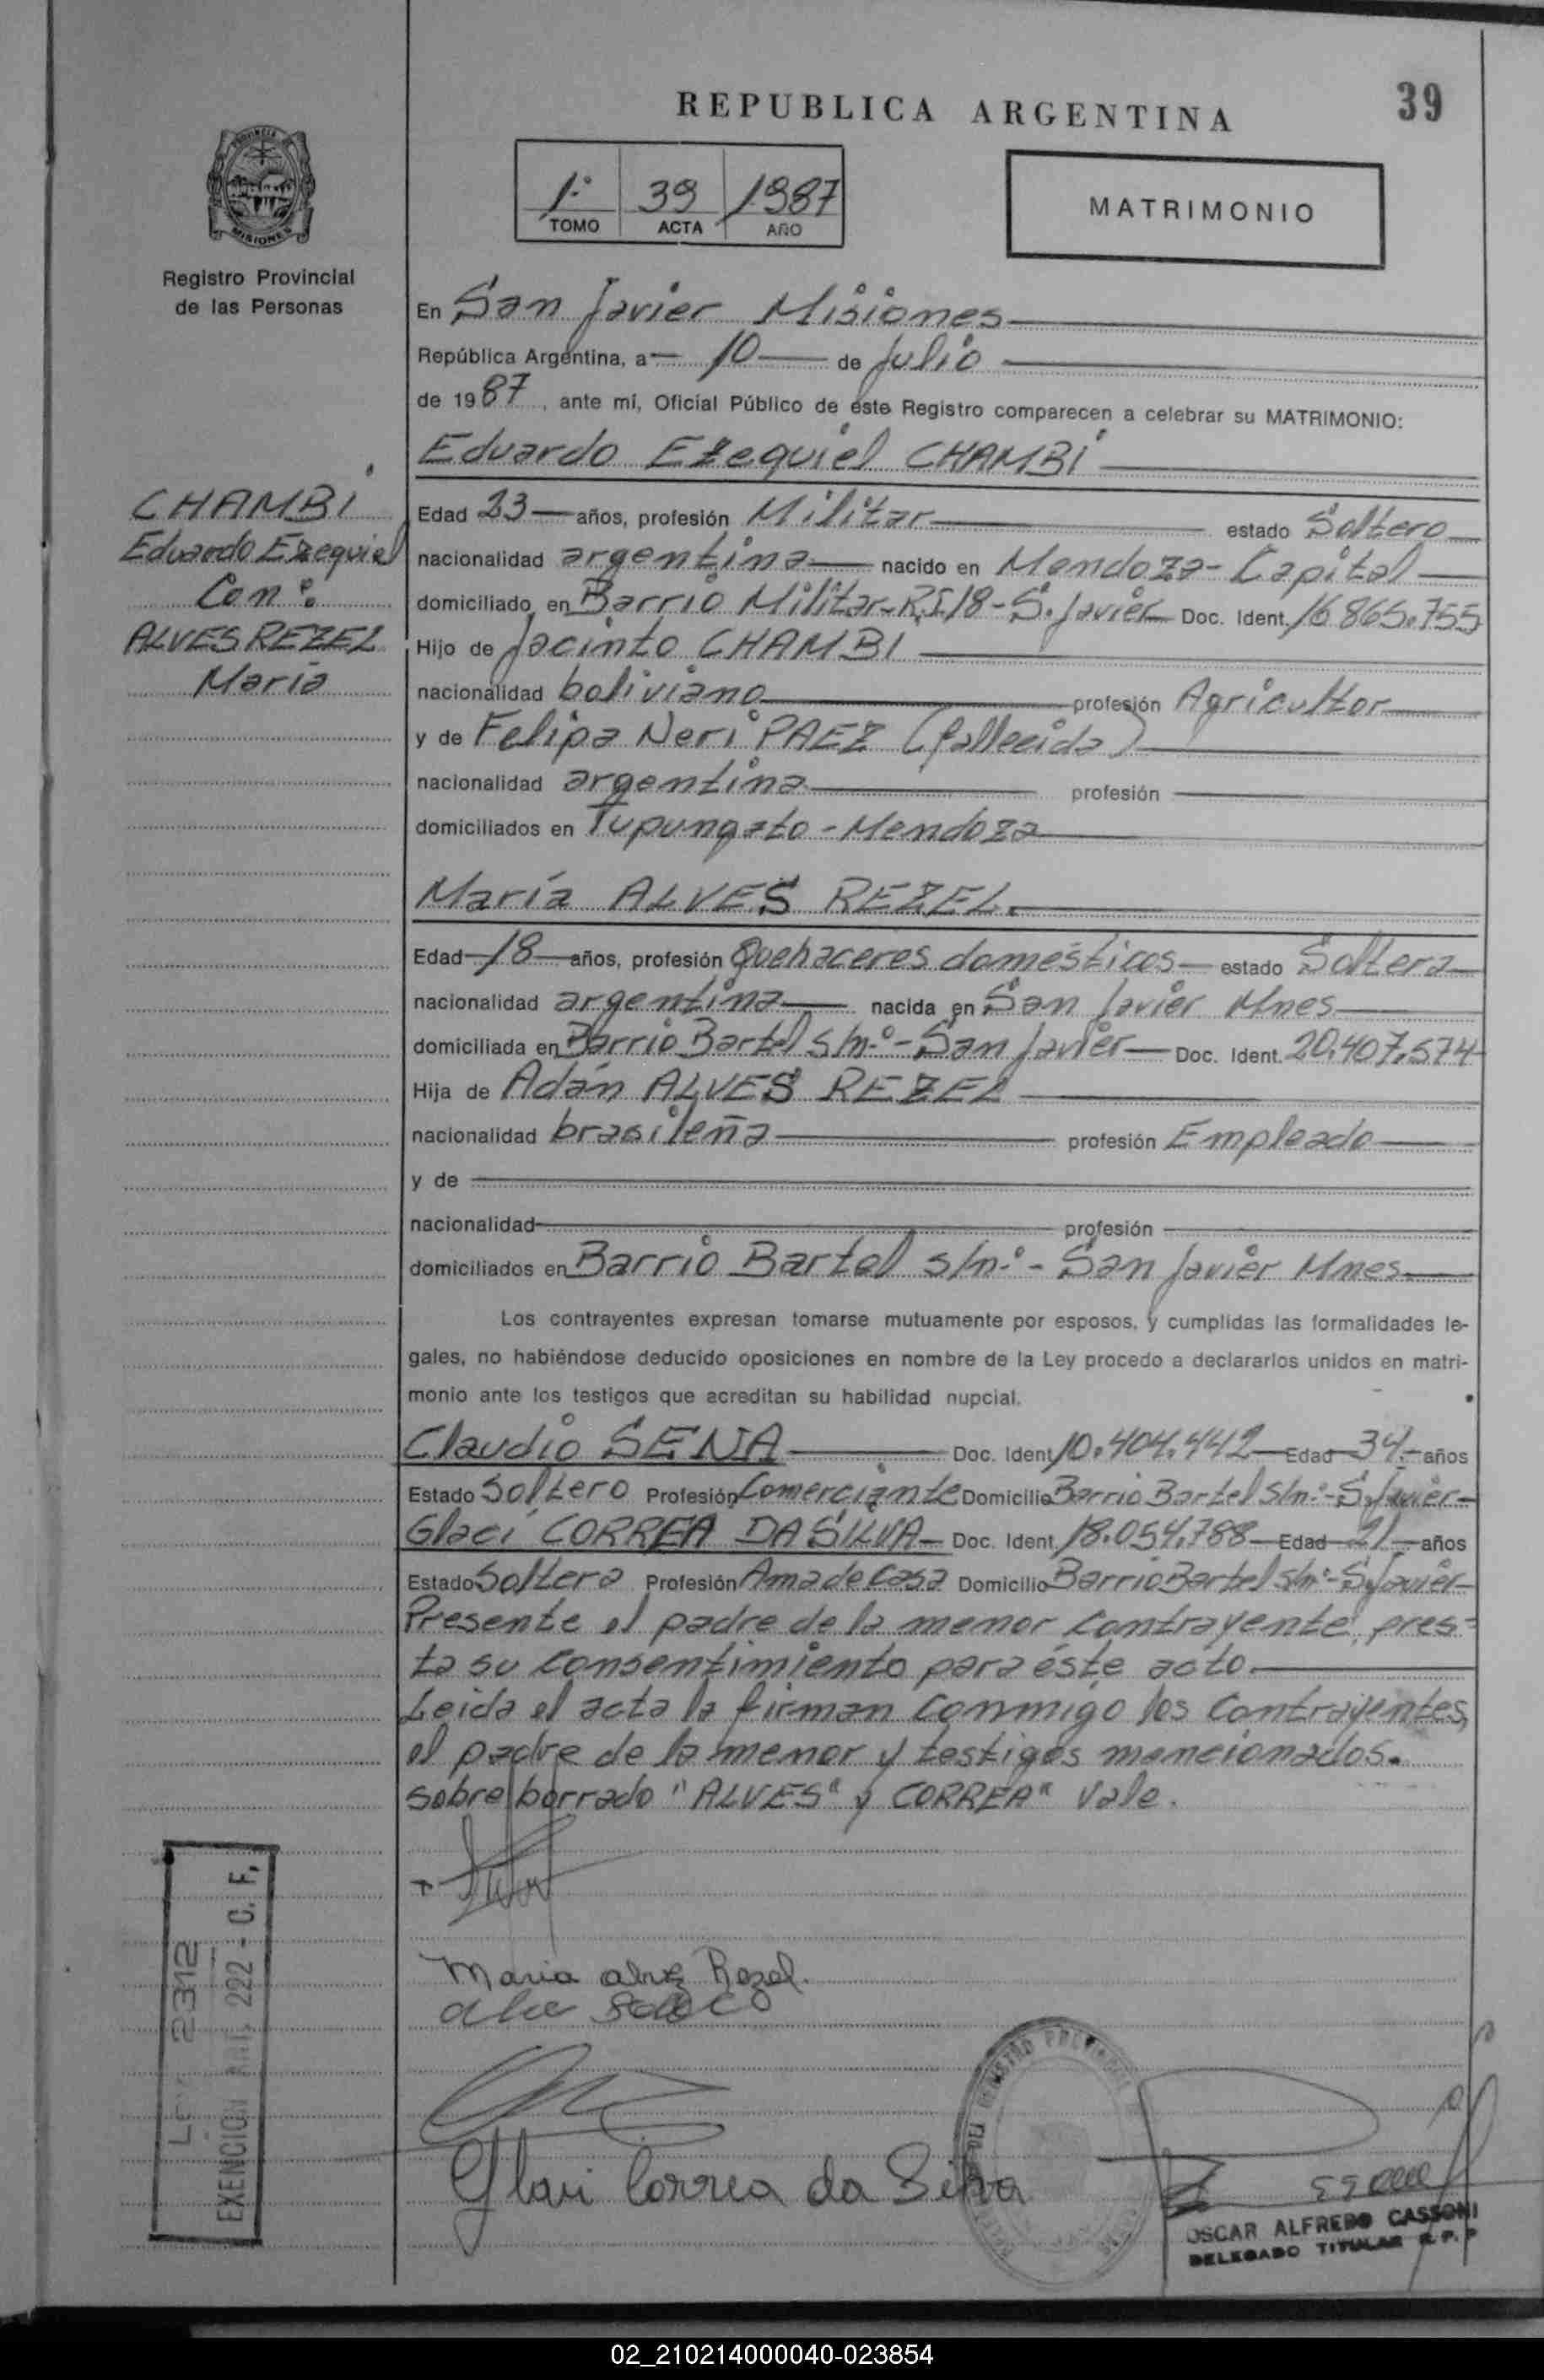 REPUBLICA ARGENTINA
39
1º 39 1987
TOMO ACTA AÑO
MATRIMONIO
PROVINCIA
MISIONES
Registro Provincial
de las Personas
CHAMBI
Eduardo Ezequiel
Con:
ALVES REZEL
María
En San Javier Misiones
República Argentina, a 10 de Julio
de 1987, ante mí, Oficial Público de este Registro comparecen a celebrar su MATRIMONIO:
Eduardo Ezequiel CHAMBI
Edad 23 años, profesión Militar estado Soltero
nacionalidad argentina nacido en Mendoza - Capital
domiciliado en Barrio Militar-R.I.18-S.Javier Doc. Ident. 16865.755
Hijo de Jacinto CHAMBI
nacionalidad boliviano profesión Agricultor
y de Felipa Neri PAEZ (fallecida)
nacionalidad argentina profesión
domiciliados en Tupungato - Mendoza
María ALVES REZEL.
Edad 18 años, profesión Quehaceres domésticos estado Soltera
nacionalidad argentina nacida en San Javier Mnes
domiciliada en Barrio Bartel s/n.º - San Javier Doc. Ident. 20.407.574
Hija de Adán ALVES REZEL
nacionalidad brasileña profesión Empleado
y de
nacionalidad profesión
domiciliados en Barrio Bartel s/n.º - San Javier Mnes
Los contrayentes expresan tomarse mutuamente por esposos, y cumplidas las formalidades le-
gales, no habiéndose deducido oposiciones en nombre de la Ley procedo a declararlos unidos en matri-
monio ante los testigos que acreditan su habilidad nupcial.
Claudio SENA Doc. Ident. 10.404.442 Edad 34 años
Estado Soltero Profesión Comerciante Domicilio Barrio Bartel s/n.º - S.Javier-
Glaci CORREA DA SILVA Doc. Ident. 18.054.788 Edad 21 años
Estado Soltera Profesión Ama de Casa Domicilio Barrio Bartel s/n.º - S.Javier-
Presente el padre de la menor contrayente, pres-
ta su consentimiento para éste acto.
Leida el acta la firman conmigo los contrayentes,
el padre de la menor y testigos mencionados.
sobre borrado "ALVES" y CORREA" Vale.
Maria Rezel.
Glaci Correa da Silva
OSCAR ALFREDO CASSONI
DELEGADO TITULAR R. P. P
LEY 2312
EXENCION Art. 222 - C. F.
02_210214000040-023854